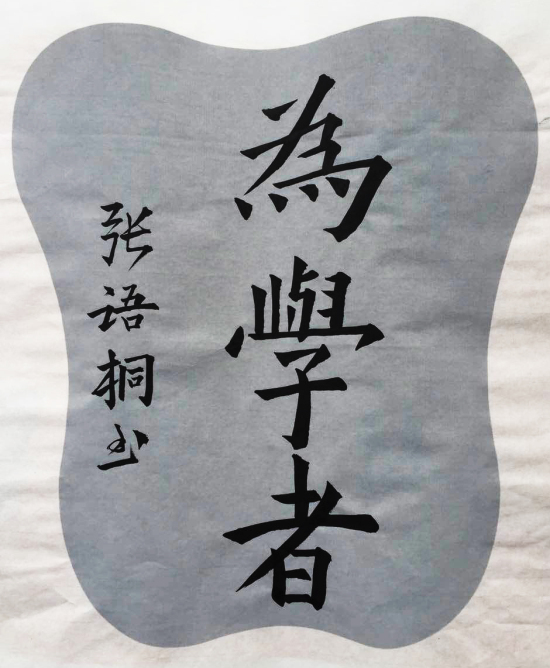 為學者
张语桐书